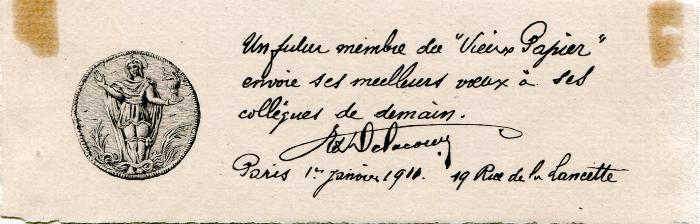 Un futur membre du "Vieux Papier"
envoie ses meilleurs vœux à ses
collègues de demain.
Paris 1er Janvier 1911. 19 Rue de la Lancette